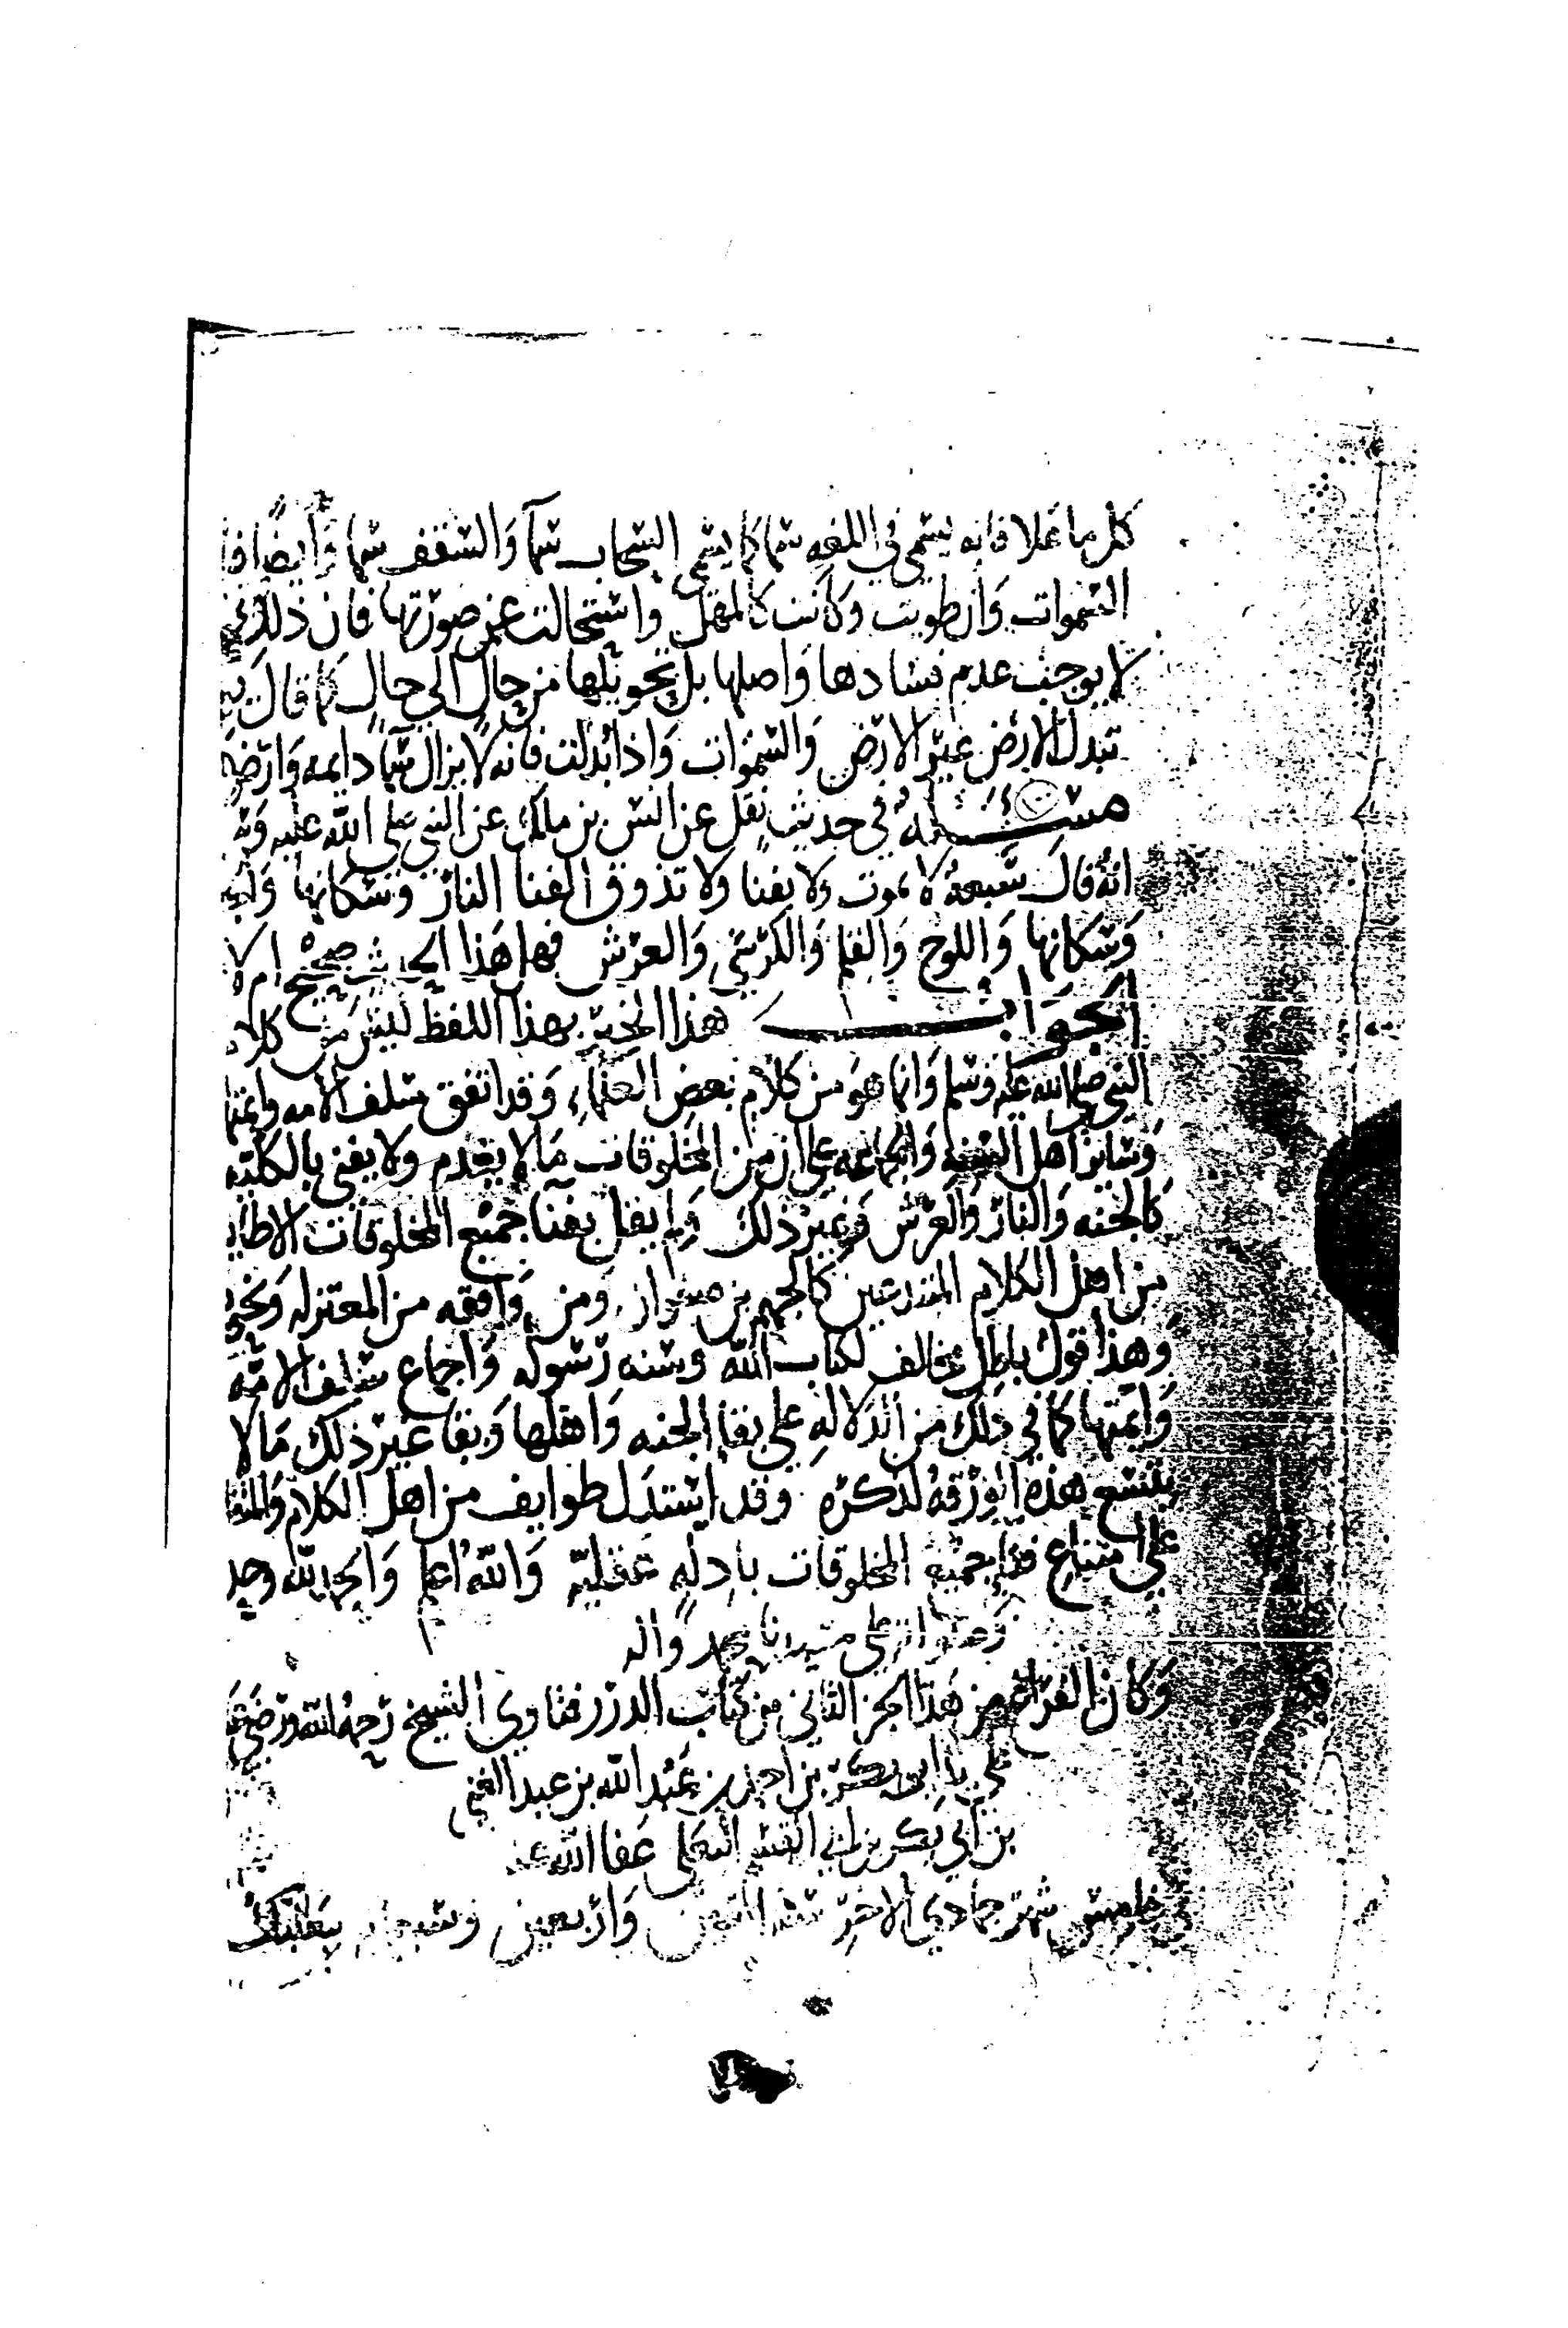 كل ما علا فانه يسمى في اللغه سما كما يسمى السحاب سمآ والسقف سما وأيضًا فا
السموات وان طويت وكانت كالمهل واستحالت عن صورتها فان ذلك
لا يوجب عدم فسادها واصلها بل تحويلها من حال الى حال كما قال
تبدل الارض غير الارض والسموات واذا بدلت فانه لا يزال سمآ دايمه وارض
مسئله في حديث نقل عن انس بن ملك عن النبي صلى الله عليه و
انه قال سبعة لا تموت ولا يفنا ولا تذوق الفنا النار وسكانها و
وسكانها واللوح والقلم والكرسي والعرش فهل هذا الحديث صحيح ام لا
الجواب هذا الخبر بهذا اللفظ ليس من كلا
النبي صلى الله عليه وسلم وانما هو من كلام بعض العلماء وقد اتفق سلف الامه وايمتا
وساير اهل السنه والجماعه على ان من المخلوقات ما لا يعدم ولا يفنى بالكليه
كالجنه والنار والعرش وغير ذلك ولم يقل بفنا جميع المخلوقات الا طا
من اهل الكلام المبتدعين كالجهم بن صفوان ومن وافقه من المعتزله ونحو
وهذا قول باطل مخالف لكتاب الله وسنه رسوله واجماع سلف الامه
وايمتها كما في ذلك من الدلاله على بقا الجنه واهلها وبقا غير ذلك ما لا
يتسع هذه الورقه لذكره وقد استدل طوايف من اهل الكلام والمتفا
على امتناع فنا جميع المخلوقات بادله عقليه والله اعلم والحمد لله وحد
وصلواته على سيدنا محمد واله
وكان الفراغ من هذا الجز الثاني من كتاب الدرر فتاوى الشيخ رحمه الله ورضي
ابو بكر بن عبد الله بن عبد الغني
بن ابي بكر بن ابي القسم عفا الله عنه
خامس شهر جمادى الاخر سنه وأربعين وسبعمايه ببعلبك